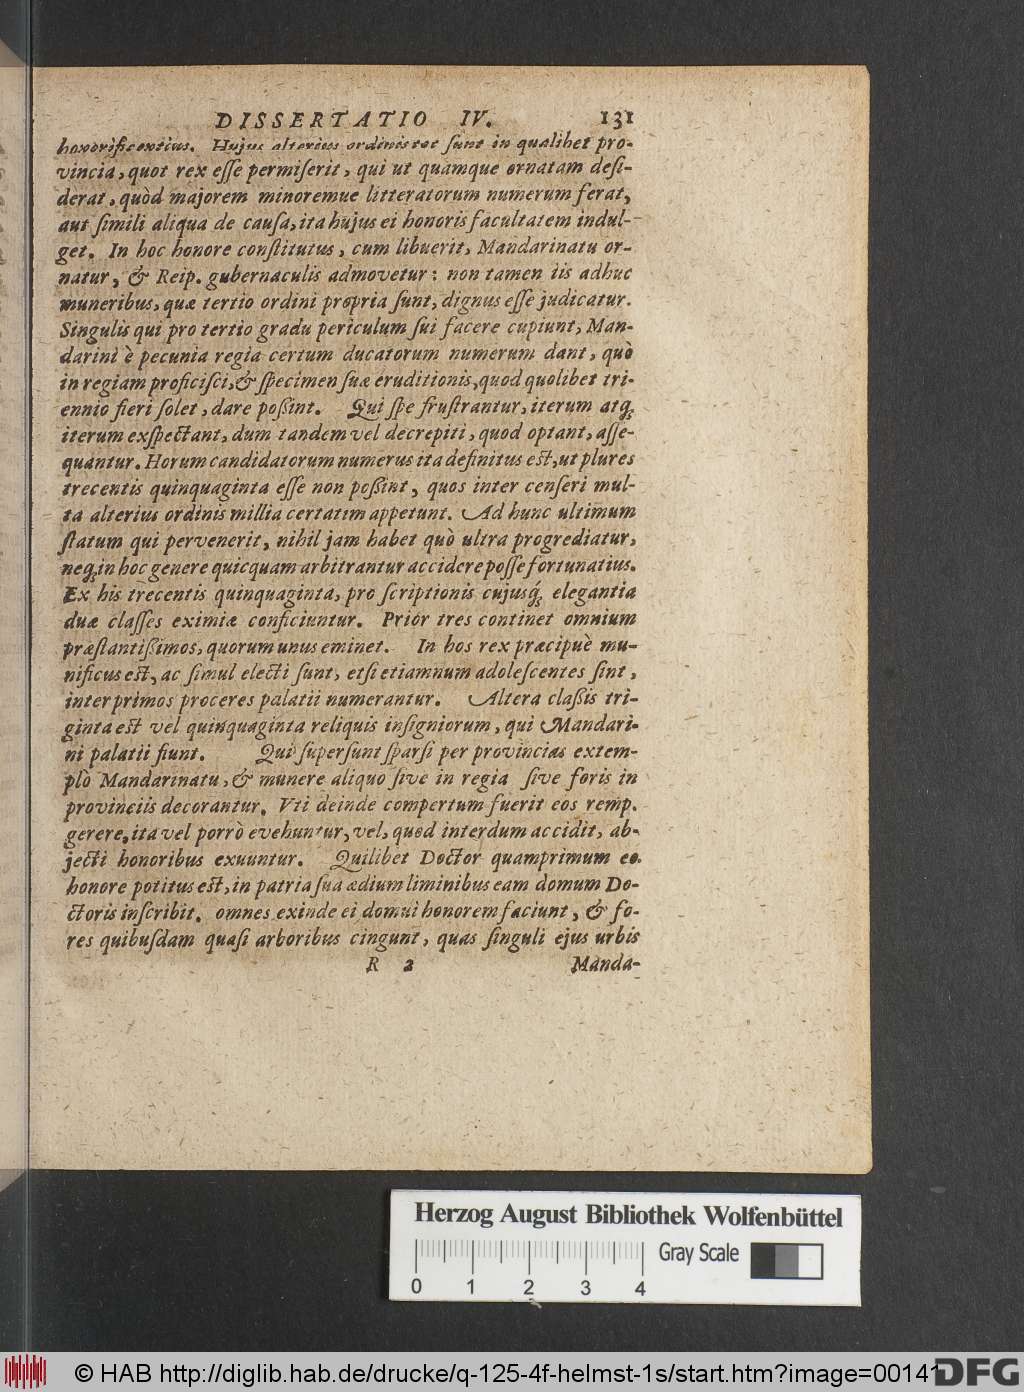 DISSERTATIO IV. 131
honorificentius. Hujus alterius ordinis tot sunt in qualibet pro-
vincia, quot rex esse permiserit, qui ut quamque ornatam desi-
derat, quòd majorem minoremue litteratorum numerum ferat,
aut simili aliqua de causa, ita hujus ei honoris facultatem indul-
get. In hoc honore constitutus, cum libuerit, Mandarinatu or-
natur, & Reip. gubernaculis admovetur: non tamen iis adhuc
muneribus, quæ tertio ordini propria sunt, dignus esse judicatur.
Singulis qui pro tertio gradu periculum sui facere cupiunt, Man-
darini è pecunia regia certum ducatorum numerum dant, quò
in regiam proficisci, & specimen suæ eruditionis, quod quolibet tri-
ennio fieri solet, dare poßint. Qui spe frustrantur, iterum atq;
iterum exspectant, dum tandem vel decrepiti, quod optant, asse-
quantur. Horum candidatorum numerus ita definitus est, ut plures
trecentis quinquaginta esse non poßint, quos inter censeri mul-
ta alterius ordinis millia certatim appetunt. Ad hunc ultimum
statum qui pervenerit, nihil jam habet quò ultra progrediatur,
neq; in hoc genere quicquam arbitrantur accidere posse fortunatius.
Ex his trecentis quinquaginta, pro scriptionis cujusq́; elegantia
duæ classes eximiæ conficiuntur. Prior tres continet omnium
præstantißimos, quorum unus eminet. In hos rex præcipuè mu-
nificus est, ac simul electi sunt, etsi etiamnum adolescentes sint,
inter primos proceres palatii numerantur. Altera claßis tri-
ginta est vel quinquaginta reliquis insigniorum, qui Mandari-
ni palatii fiunt. Qui supersunt sparsi per provincias extem-
plò Mandarinatu, & munere aliquo sive in regia sive foris in
provinciis decorantur. Vti deinde compertum fuerit eos remp.
gerere, ita vel porrò evehuntur, vel, quod interdum accidit, ab-
jecti honoribus exuuntur. Quilibet Doctor quamprimum eo
honore potitus est, in patria sua ædium liminibus eam domum Do-
ctoris inscribit. omnes exinde ei domui honorem faciunt, & fo-
res quibusdam quasi arboribus cingunt, quas singuli ejus urbis
R 2 Manda-
Herzog August Bibliothek Wolfenbüttel
Gray Scale
0 1 2 3 4
© HAB http://diglib.hab.de/drucke/q-125-4f-helmst-1s/start.htm?image=00141
DFG